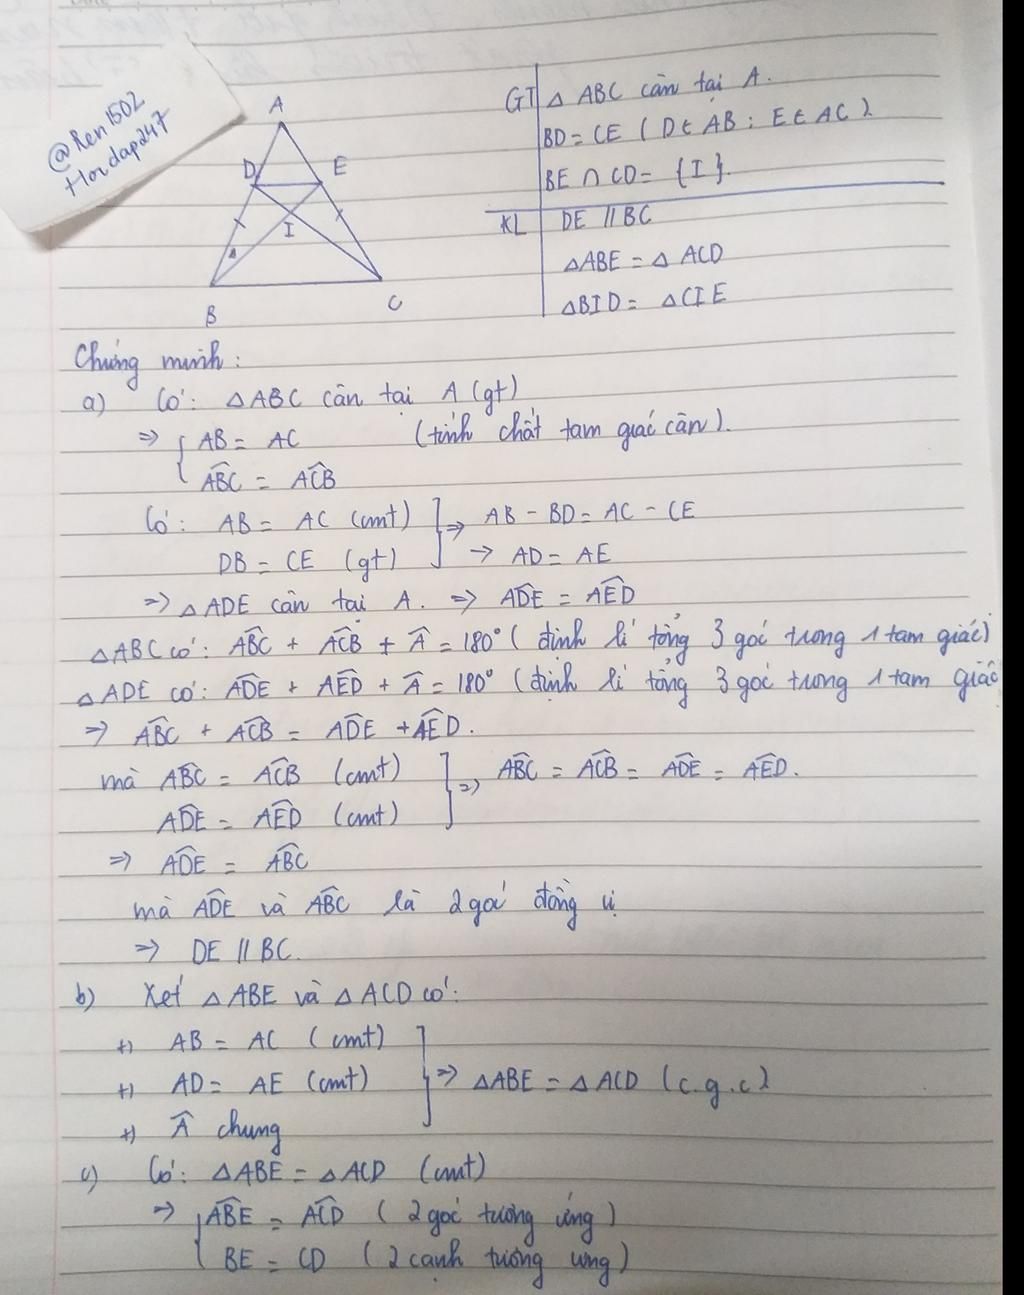 @Ren1502
Hoidap247
A
D
E
I
B
C
GT Δ ABC cân tại A.
BD = CE ( D ∈ AB ; E ∈ AC )
BE ∩ CD = {I}.
KL DE // BC
Δ ABE = Δ ACD
Δ BID = Δ CIE
Chứng minh :
a) Có : Δ ABC cân tại A (gt)
=> { AB = AC (tính chất tam giác cân).
\widehat{ABC} = \widehat{ACB}
Có : AB = AC (cmt) ] => AB - BD = AC - CE
DB = CE (gt) → AD = AE
=> Δ ADE cân tại A. => \widehat{ADE} = \widehat{AED}
Δ ABC có : \widehat{ABC} + \widehat{ACB} + \widehat{A} = 180° ( định lí tổng 3 góc trong 1 tam giác)
Δ ADE có : \widehat{ADE} + \widehat{AED} + \widehat{A} = 180° (định lí tổng 3 góc trong 1 tam giác
=> \widehat{ABC} + \widehat{ACB} = \widehat{ADE} + \widehat{AED}.
mà \widehat{ABC} = \widehat{ACB} (cmt) ] => \widehat{ABC} = \widehat{ACB} = \widehat{ADE} = \widehat{AED}.
\widehat{ADE} = \widehat{AED} (cmt)
=> \widehat{ADE} = \widehat{ABC}
mà \widehat{ADE} và \widehat{ABC} là 2 góc đồng vị
=> DE // BC.
b) Xét Δ ABE và Δ ACD có :
+) AB = AC ( cmt)
+) AD = AE (cmt) ] => Δ ABE = Δ ACD (c.g.c)
+) \widehat{A} chung
c) Có : Δ ABE = Δ ACD (cmt)
=> { \widehat{ABE} = \widehat{ACD} ( 2 góc tương ứng )
BE = CD ( 2 cạnh tương ứng )